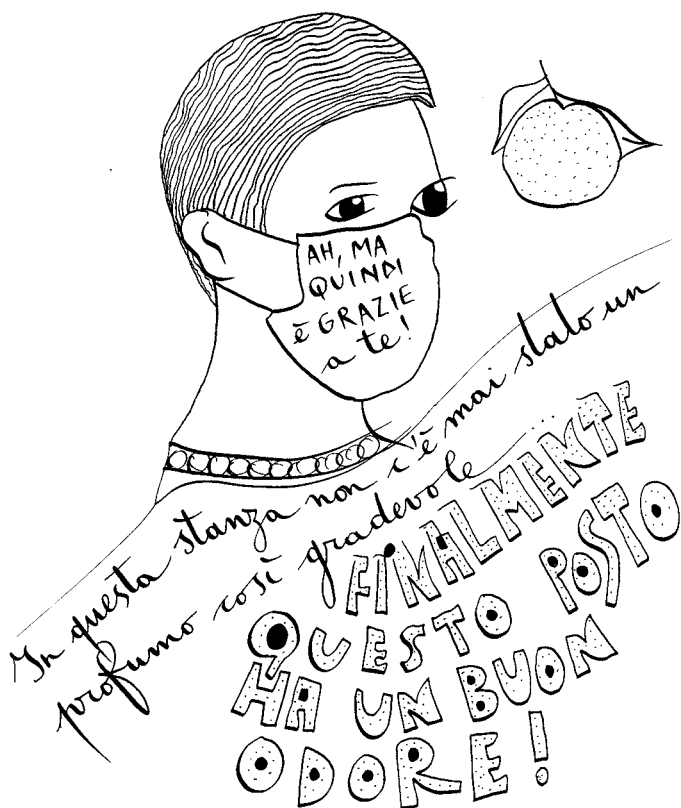 AH, MA
QUINDI
è GRAZIE
a te!
In questa stanza non c'è mai stato un
profumo così gradevole ...
FINALMENTE
QUESTO POSTO
HA UN BUON
ODORE!